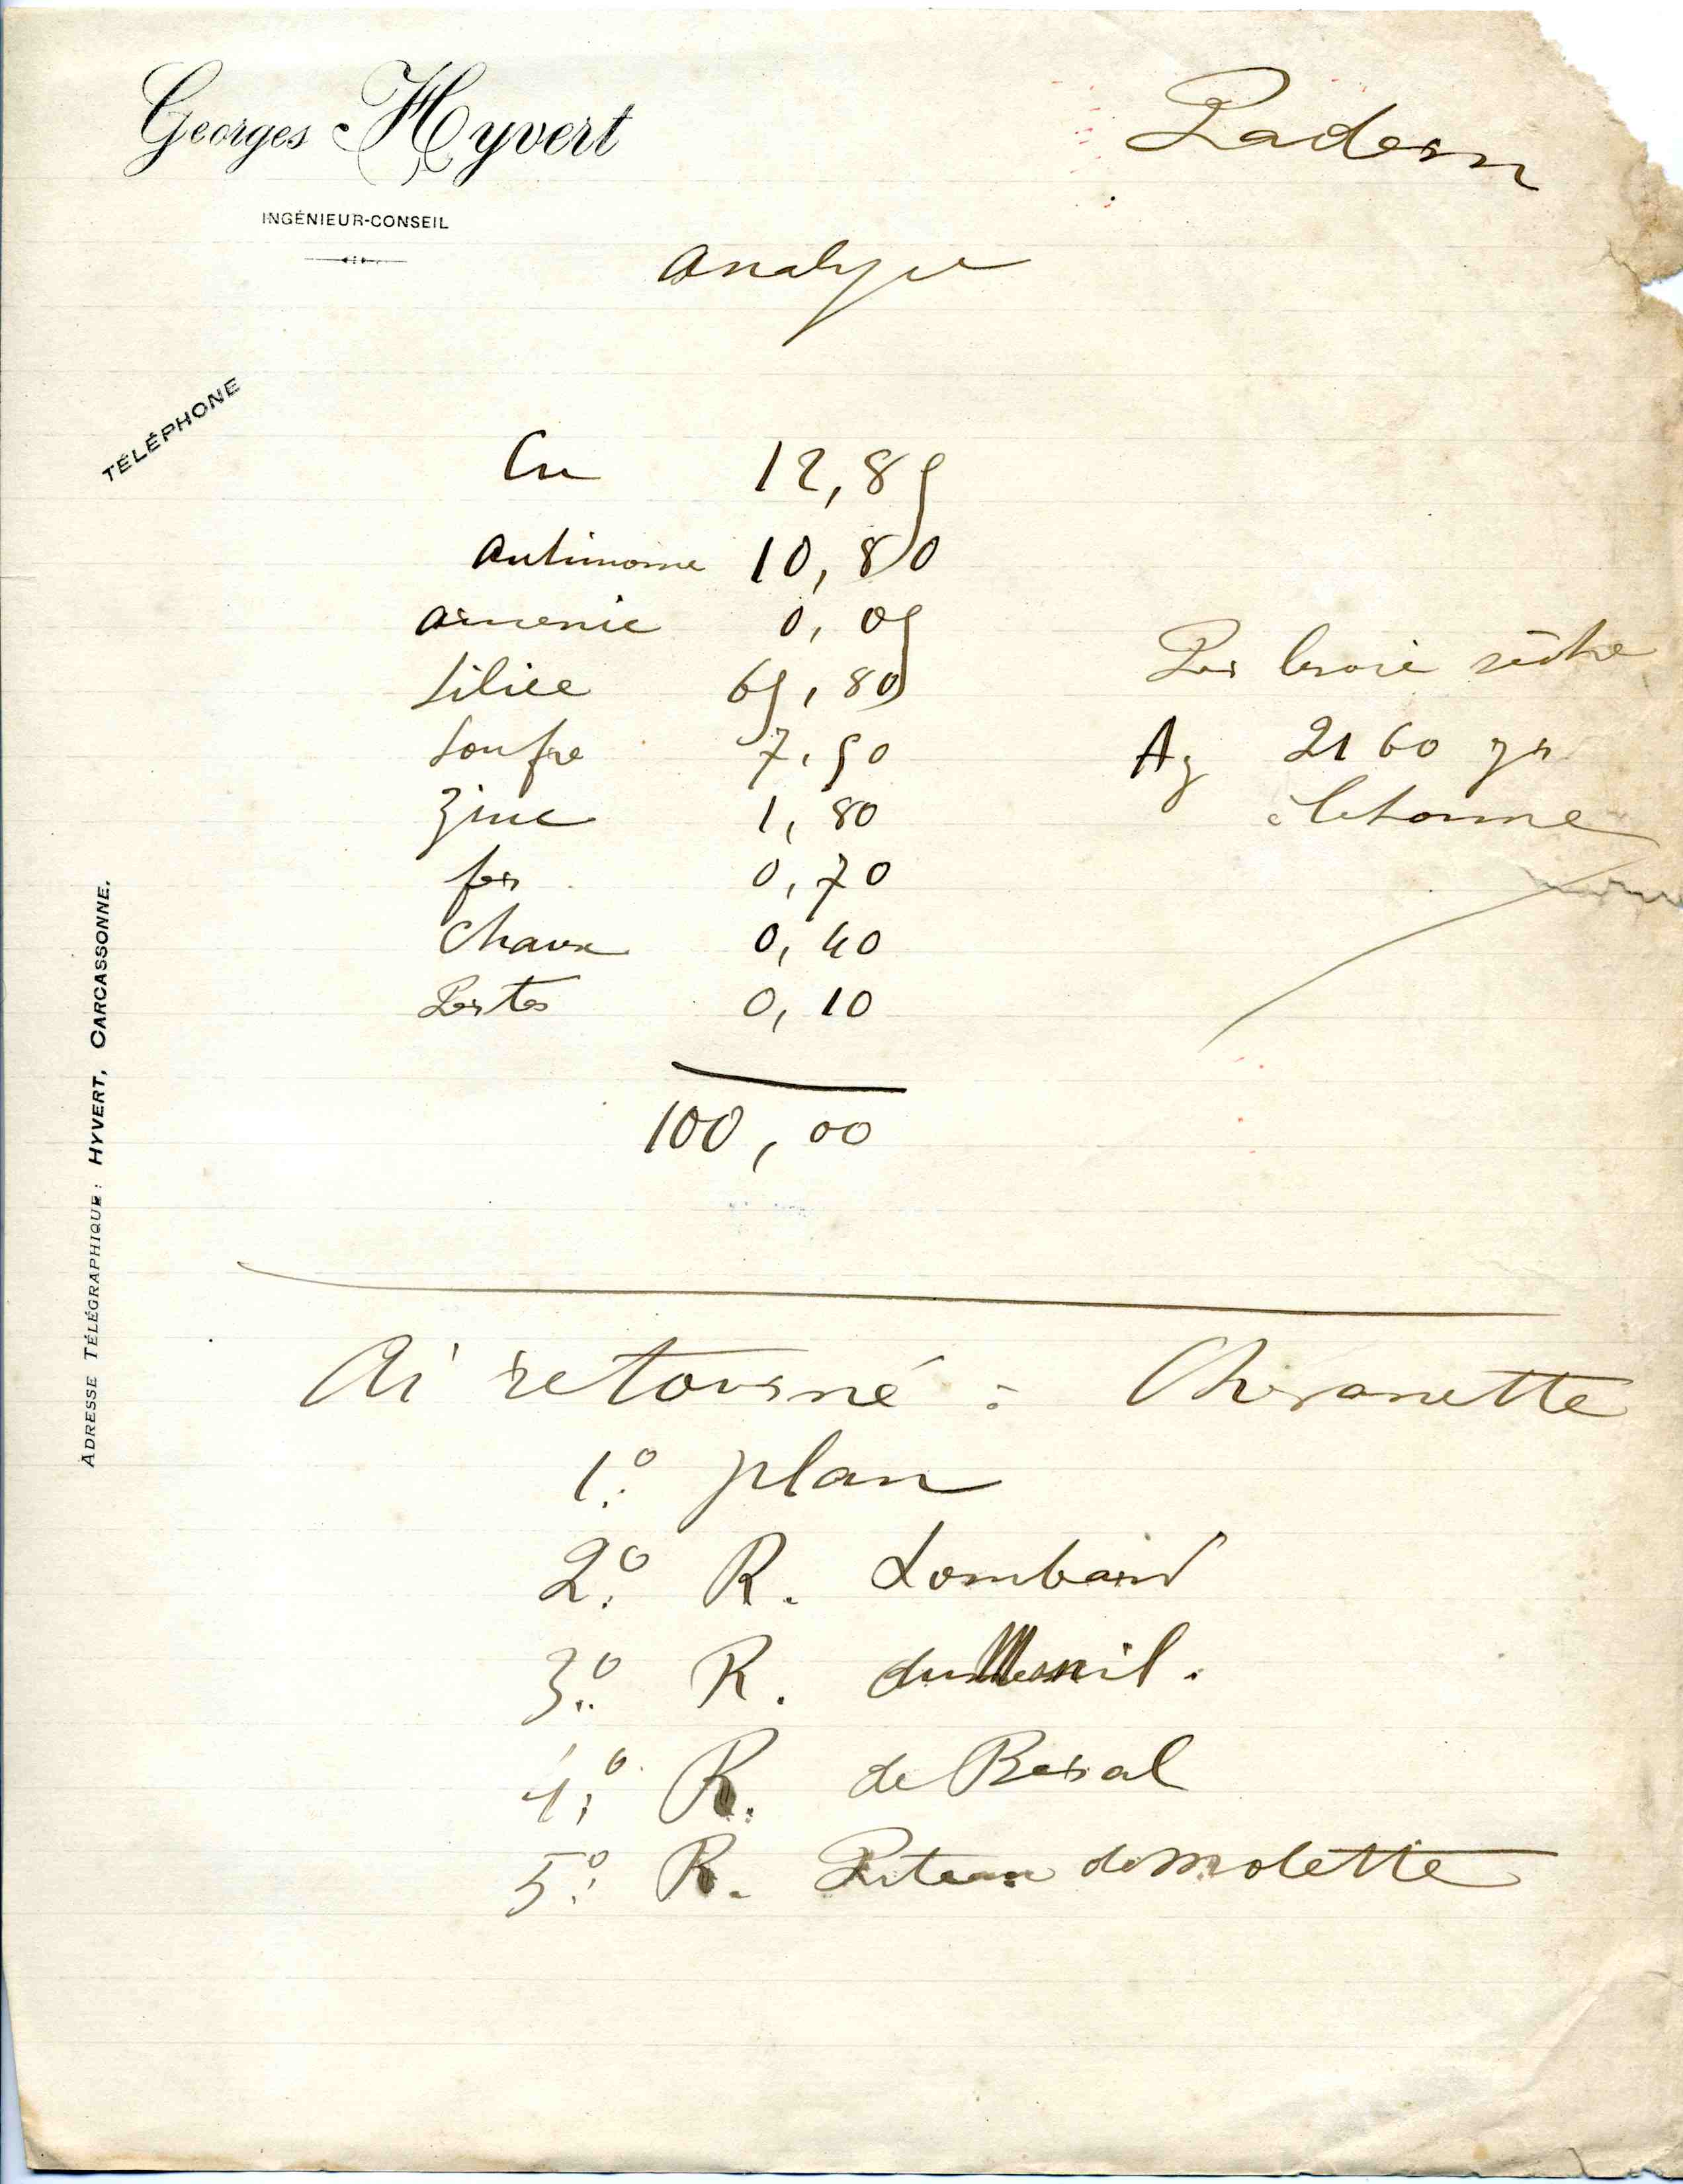 Georges Hyvert
INGÉNIEUR-CONSEIL
Padern
analyse
TÉLÉPHONE
Cu 12,85
antimoine 10,80
arsenic 0,05
Silice 65,80
Soufre 7,50
Zinc 1,80
fer 0,70
Chaux 0,40
Pertes 0,10
100,00
Par la voie sèche
Ag 2160 gr
à la tonne
ADRESSE TÉLÉGRAPHIQUE : HYVERT, CARCASSONNE.
Ai retourné : Charonette
1° plan
2° R. Lombard
3° R. du Mesnil.
4° R. de Beral
5° R. Puteau de Molette